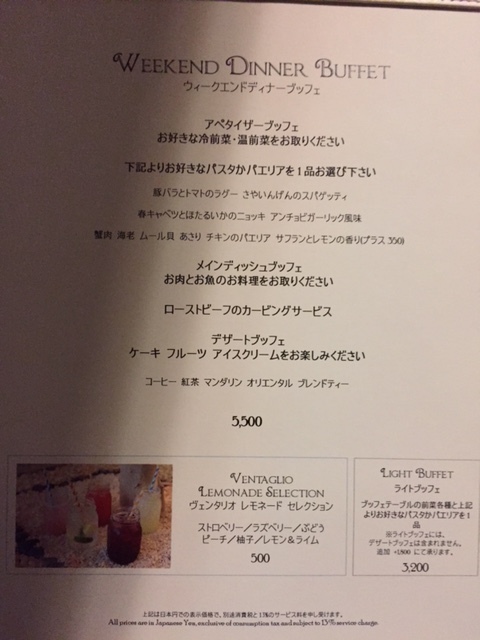 WEEKEND DINNER BUFFET
ウィークエンドディナーブッフェ
アペタイザーブッフェ
お好きな冷前菜・温前菜をお取りください
下記よりお好きなパスタかパエリアを1品お選び下さい
豚バラとトマトのラグー さやいんげんのスパゲッティ
春キャベツとほたるいかのニョッキ アンチョビガーリック風味
蟹肉 海老 ムール貝 あさり チキンのパエリア サフランとレモンの香り(プラス 350)
メインディッシュブッフェ
お肉とお魚のお料理をお取りください
ローストビーフのカービングサービス
デザートブッフェ
ケーキ フルーツ アイスクリームをお楽しみください
コーヒー 紅茶 マンダリン オリエンタル ブレンドティー
5,500
VENTAGLIO
LEMONADE SELECTION
ヴェンタリオ レモネード セレクション
ストロベリー/ラズベリー/ぶどう
ピーチ/柚子/レモン&ライム
500
LIGHT BUFFET
ライトブッフェ
ブッフェテーブルの前菜各種と上記
よりお好きなパスタかパエリアを1
品
※ライトブッフェには、
デザートブッフェは含まれません。
追加 +1,800 にて承ります。
3,200
上記は日本円での表示価格で、別途消費税と13%のサービス料を申し受けます。
All prices are in Japanese Yen, exclusive of consumption tax and subject to 13% service charge.